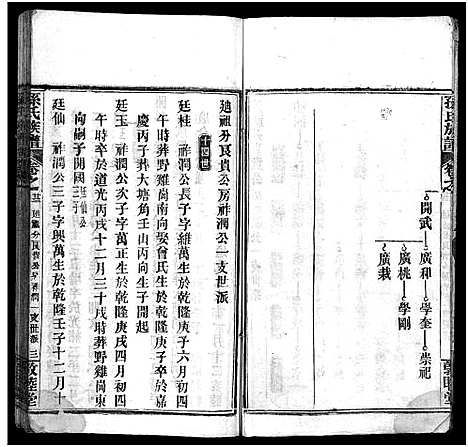 孫氏族譜
卷之
開武
廣和
學奎
崇祀
廣桃
學剛
廣栽
敦睦堂
廸祖分良貴公房祚潤公一支世派
十四世
廷桂 祚潤公長子字維萬生於乾隆庚子六月初四
午時葬野雞崗南向娶曾氏生於乾隆庚子卒於嘉
慶丙子葬大塘角壬山丙向生子開起
廷玉 祚潤公次子字萬正生於乾隆庚戌四月初四
午時卒於道光丙戌十二月三十戌時葬野雞崗東
向嗣子開國
廷仙 祚潤公三子字興萬生於乾隆壬子十二月十
孫氏族譜
卷之
廸祖分良貴公房祚潤一支世派
三
敦睦堂